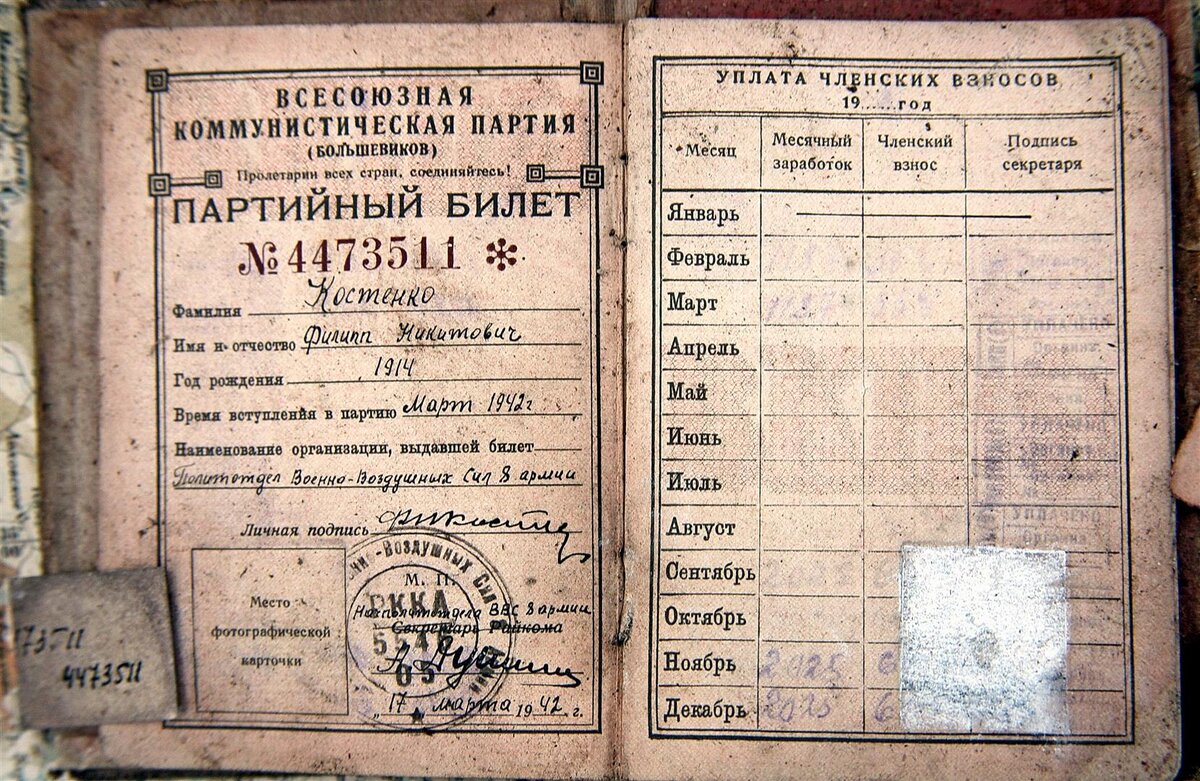 ВСЕСОЮЗНАЯ
КОММУНИСТИЧЕСКАЯ ПАРТИЯ
(БОЛЬШЕВИКОВ)
Пролетарии всех стран, соединяйтесь!
ПАРТИЙНЫЙ БИЛЕТ
№ 4473511
Фамилия Костенко
Имя и отчество Филипп Никитович
Год рождения 1914
Время вступления в партию Март 1942г
Наименование организации, выдавшей билет
Политотдел Военно-Воздушных Сил 8 армии
Личная подпись
Место
фотографической
карточки
-Воздушных Сил
М. П.
РККА
Нач политотдела ВВС 8 армии
Секретарь Райкома
„17„ марта 1942.г.
73511
4473511
УПЛАТА ЧЛЕНСКИХ ВЗНОСОВ
19.....год
Месяц Месячный заработок Членский взнос Подпись секретаря
Январь
Февраль
Март
Апрель
Май
Июнь
Июль
Август
Сентябрь
Октябрь
Ноябрь 2025
Декабрь 2025